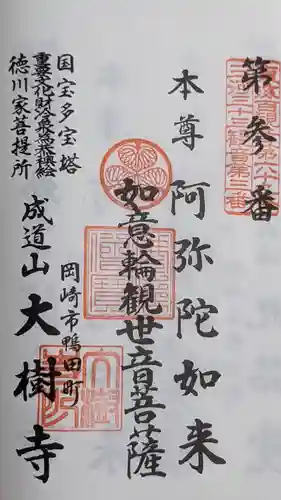 第参番
本尊 阿弥陀如来
如意輪観世音菩薩
国宝多宝塔
重要文化財冷泉為恭襖絵
徳川家菩提所
岡崎市鴨田町
成道山 大樹寺